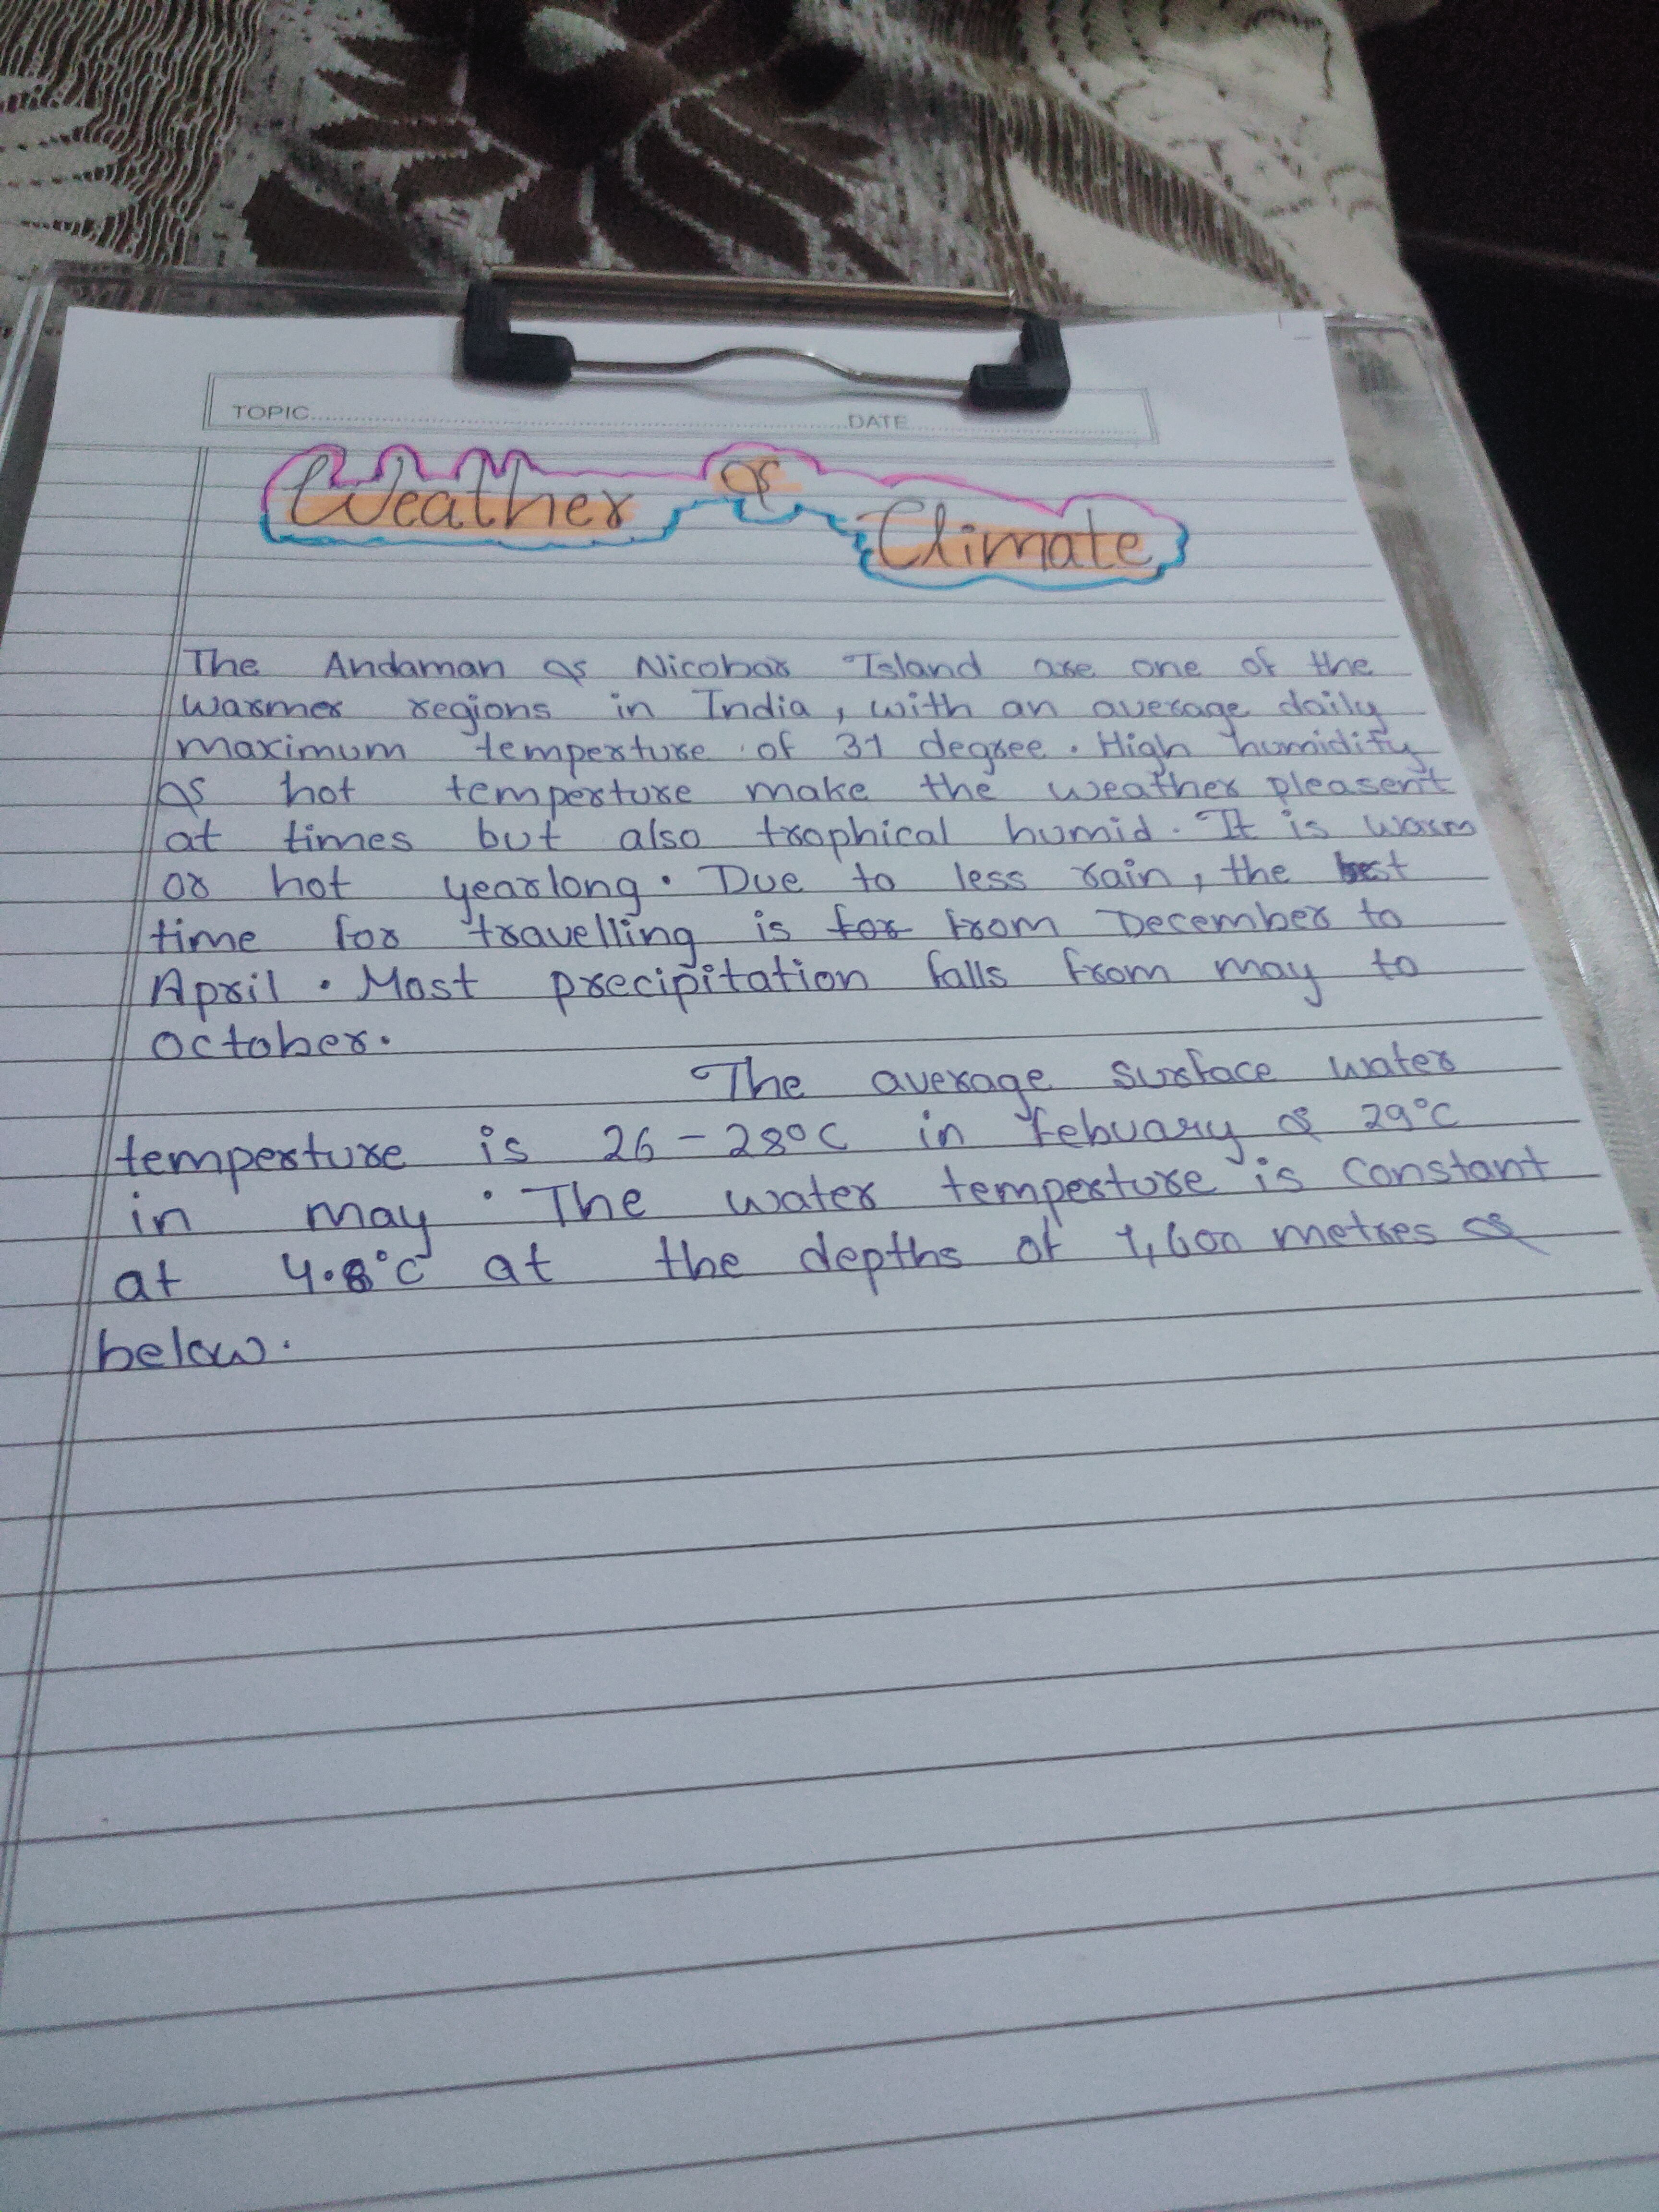 TOPIC DATE
Weather & Climate
The Andaman & Nicobar Island are one of the
warmer regions in India, with an average daily
maximum temperture of 31 degree. High humidity
& hot temperture make the weather pleasent
at times but also trophical humid. It is warm
or hot yearlong. Due to less rain, the best
time for travelling is for from December to
April. Most precipitation falls from may to
october.
The average surface water
temperture is 26-28°C in febuary & 29°C
in may. The water temperture is constant
at 4.8°C at the depths of 1,600 metres &
below.